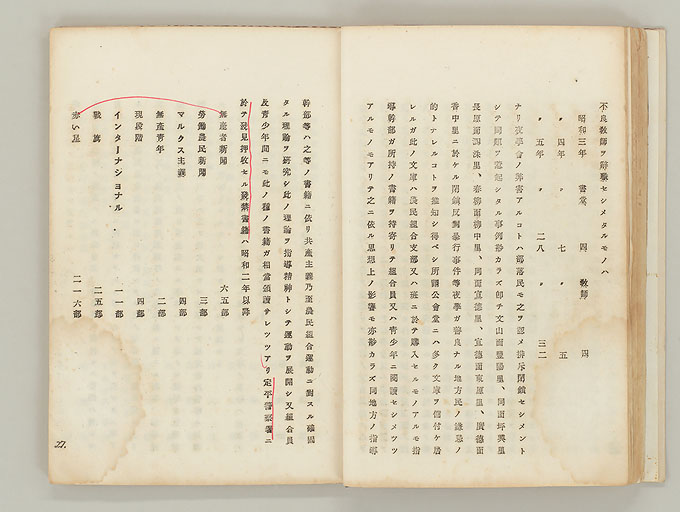 不良教師ヲ辭職セシメタルモノハ
昭和三年 書堂 四 敎師 四
〃 四年 〃 七 〃 五
〃 五年 〃 二八 〃 三二
ナリ夜學會ノ弊害アルコトハ部落民モ之ヲ認メ排斥閉鎖セシメント
シテ問題ヲ惹起シタル事例尠カラズ即チ文山面豐陽里、同面坪興里
長原面 洙里、春柳面柳中里、同面宜德里、宜德面東原里、廣德面
香中里ニ於ケル閉鎖反對暴行事件等夜學ガ善良ナル地方民ノ嫌忌ノ
的トナレルコトヲ推知シ得ベシ所謂公會堂ニハ多ク文庫ヲ備付ケ居
レルガ此ノ文庫ハ農民組合支部又ハ班ニ於テ購入セルモノアルモ指
導幹部ガ所持ノ書籍ヲ持寄リテ組合員又ハ青少年ニ閲讀セシメツツ
アルモノモアリテ之ニ依ル思想上ノ影響モ亦尠カラズ同地方ノ指導
幹部等ハ之等ノ書籍ニ依リ共産主義乃至農民組合運動ニ對スル確固
タル理論ヲ研究シ此ノ理論ヲ指導精神トシテ運動ヲ展開シ又組合員
及青少年間ニモ此ノ種ノ書籍ガ相當頒讀サレツツアリ定平警察署ニ
於テ發見押收セル發禁書籍ハ昭和二年以降
無産者新聞 六五部
勞働農民新聞 三部
マルクス主義 四部
無産青年 二部
現段階 四部
インターナショナル 一一部
戰旗 二五部
赤い星 二一六部
27.